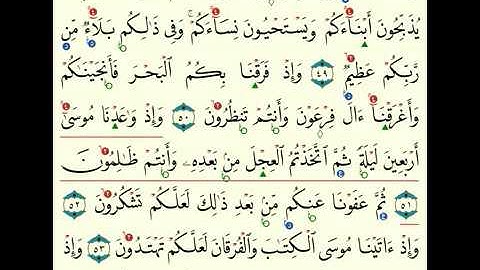 يُذَبِّحُونَ أَبْنَآءَكُمْ وَيَسْتَحْيُونَ نِسَآءَكُمْ ۚ وَفِى ذَٰلِكُم بَلَآءٌ مِّن
رَّبِّكُمْ عَظِيمٌ ٤٩ وَإِذْ فَرَقْنَا بِكُمُ ٱلْبَحْرَ فَأَنجَيْنَٰكُمْ
وَأَغْرَقْنَآ ءَالَ فِرْعَوْنَ وَأَنتُمْ تَنظُرُونَ ٥٠ وَإِذْ وَٰعَدْنَا مُوسَىٰٓ
أَرْبَعِينَ لَيْلَةً ثُمَّ ٱتَّخَذْتُمُ ٱلْعِجْلَ مِنۢ بَعْدِهِۦ وَأَنتُمْ ظَٰلِمُونَ
٥١ ثُمَّ عَفَوْنَا عَنكُم مِّنۢ بَعْدِ ذَٰلِكَ لَعَلَّكُمْ تَشْكُرُونَ ٥٢
وَإِذْ ءَاتَيْنَا مُوسَى ٱلْكِتَٰبَ وَٱلْفُرْقَانَ لَعَلَّكُمْ تَهْتَدُونَ ٥٣ وَإِذْ